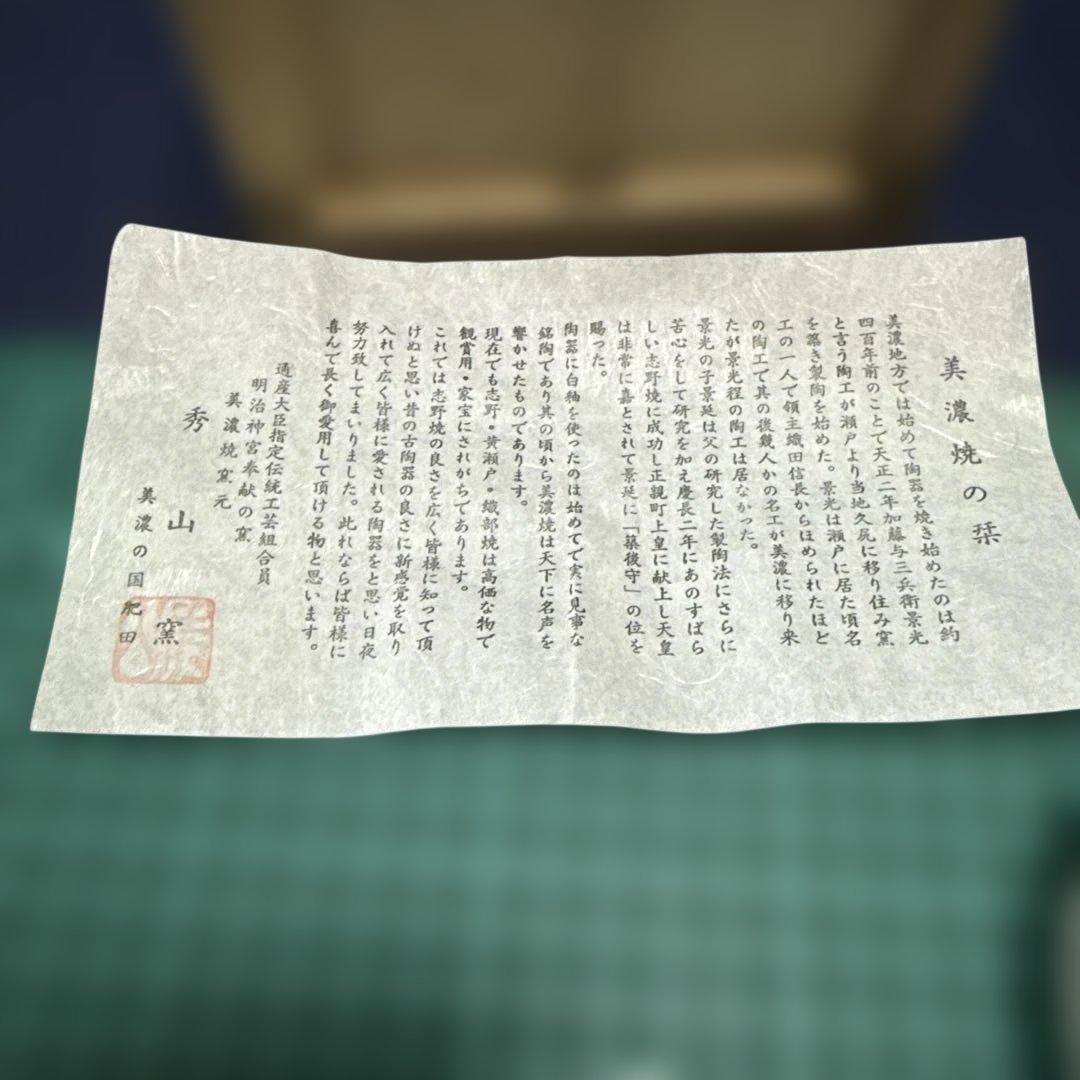 美濃焼の栞
美濃地方では始めて陶器を焼き始めたのは約
四百年前のことで天正二年加藤与三兵衛景光
と言う陶工が瀬戸より当地久尻に移り住み窯
を築き製陶を始めた。景光は瀬戸に居た頃名
工の一人で領主織田信長からほめられたほど
の陶工で其の後幾人かの名工が美濃に移り来
たが景光程の陶工は居なかった。
景光の子景延は父の研究した製陶法にさらに
苦心をして研究を加え慶長二年にあのすばら
しい志野焼に成功し正親町上皇に献上し天皇
は非常に喜とされて景延に「築後守」の位を
賜った。
陶器に白釉を使ったのは始めてで実に見事な
銘陶であり其の頃から美濃焼は天下に名声を
響かせたものであります。
現在でも志野・黄瀬戸・織部焼は高価な物で
観賞用・家宝にされがちであります。
これでは志野焼の良さを広く皆様に知って頂
けぬと思い昔の古陶器の良さに新感覚を取り
入れて広く皆様に愛される陶器をと思い日夜
努力致してまいりました。此れならば皆様に
喜んで長く御愛用して頂ける物と思います。
通産大臣指定伝統工芸組合員
明治神宮奉献の窯
美濃焼窯元
秀山窯
美濃の国肥田